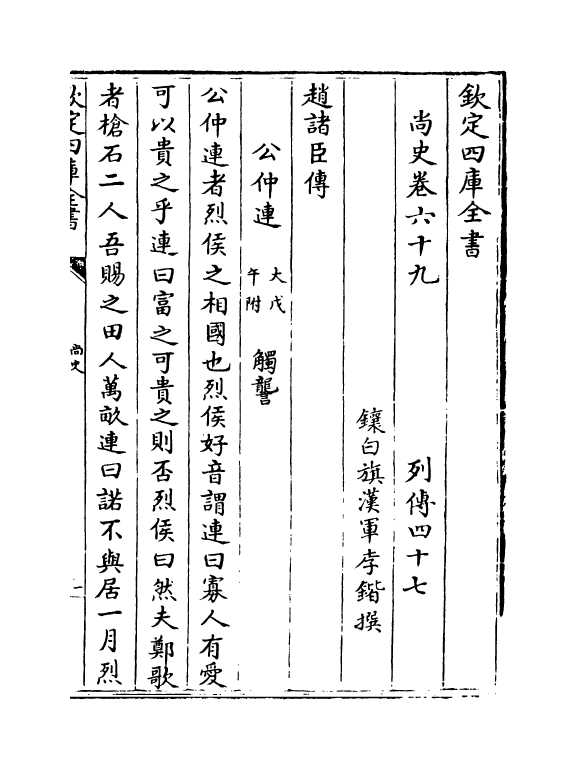 欽定四庫全書
尚史卷六十九　列傳四十七
鑲白旗漢軍李鍇撰
趙諸臣傳
公仲連 大戊午附 觸讋
公仲連者烈侯之相國也烈侯好音謂連曰寡人有愛
可以貴之乎連曰富之可貴之則否烈侯曰然夫鄭歌
者槍石二人吾賜之田人萬畝連曰諾不與居一月烈
欽定四庫全書
尚史
一